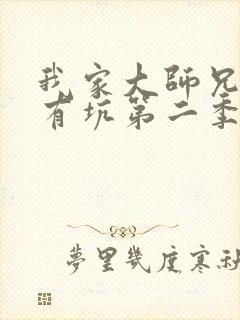 我家大師兄
有坑第二季
夢里幾度寒秋